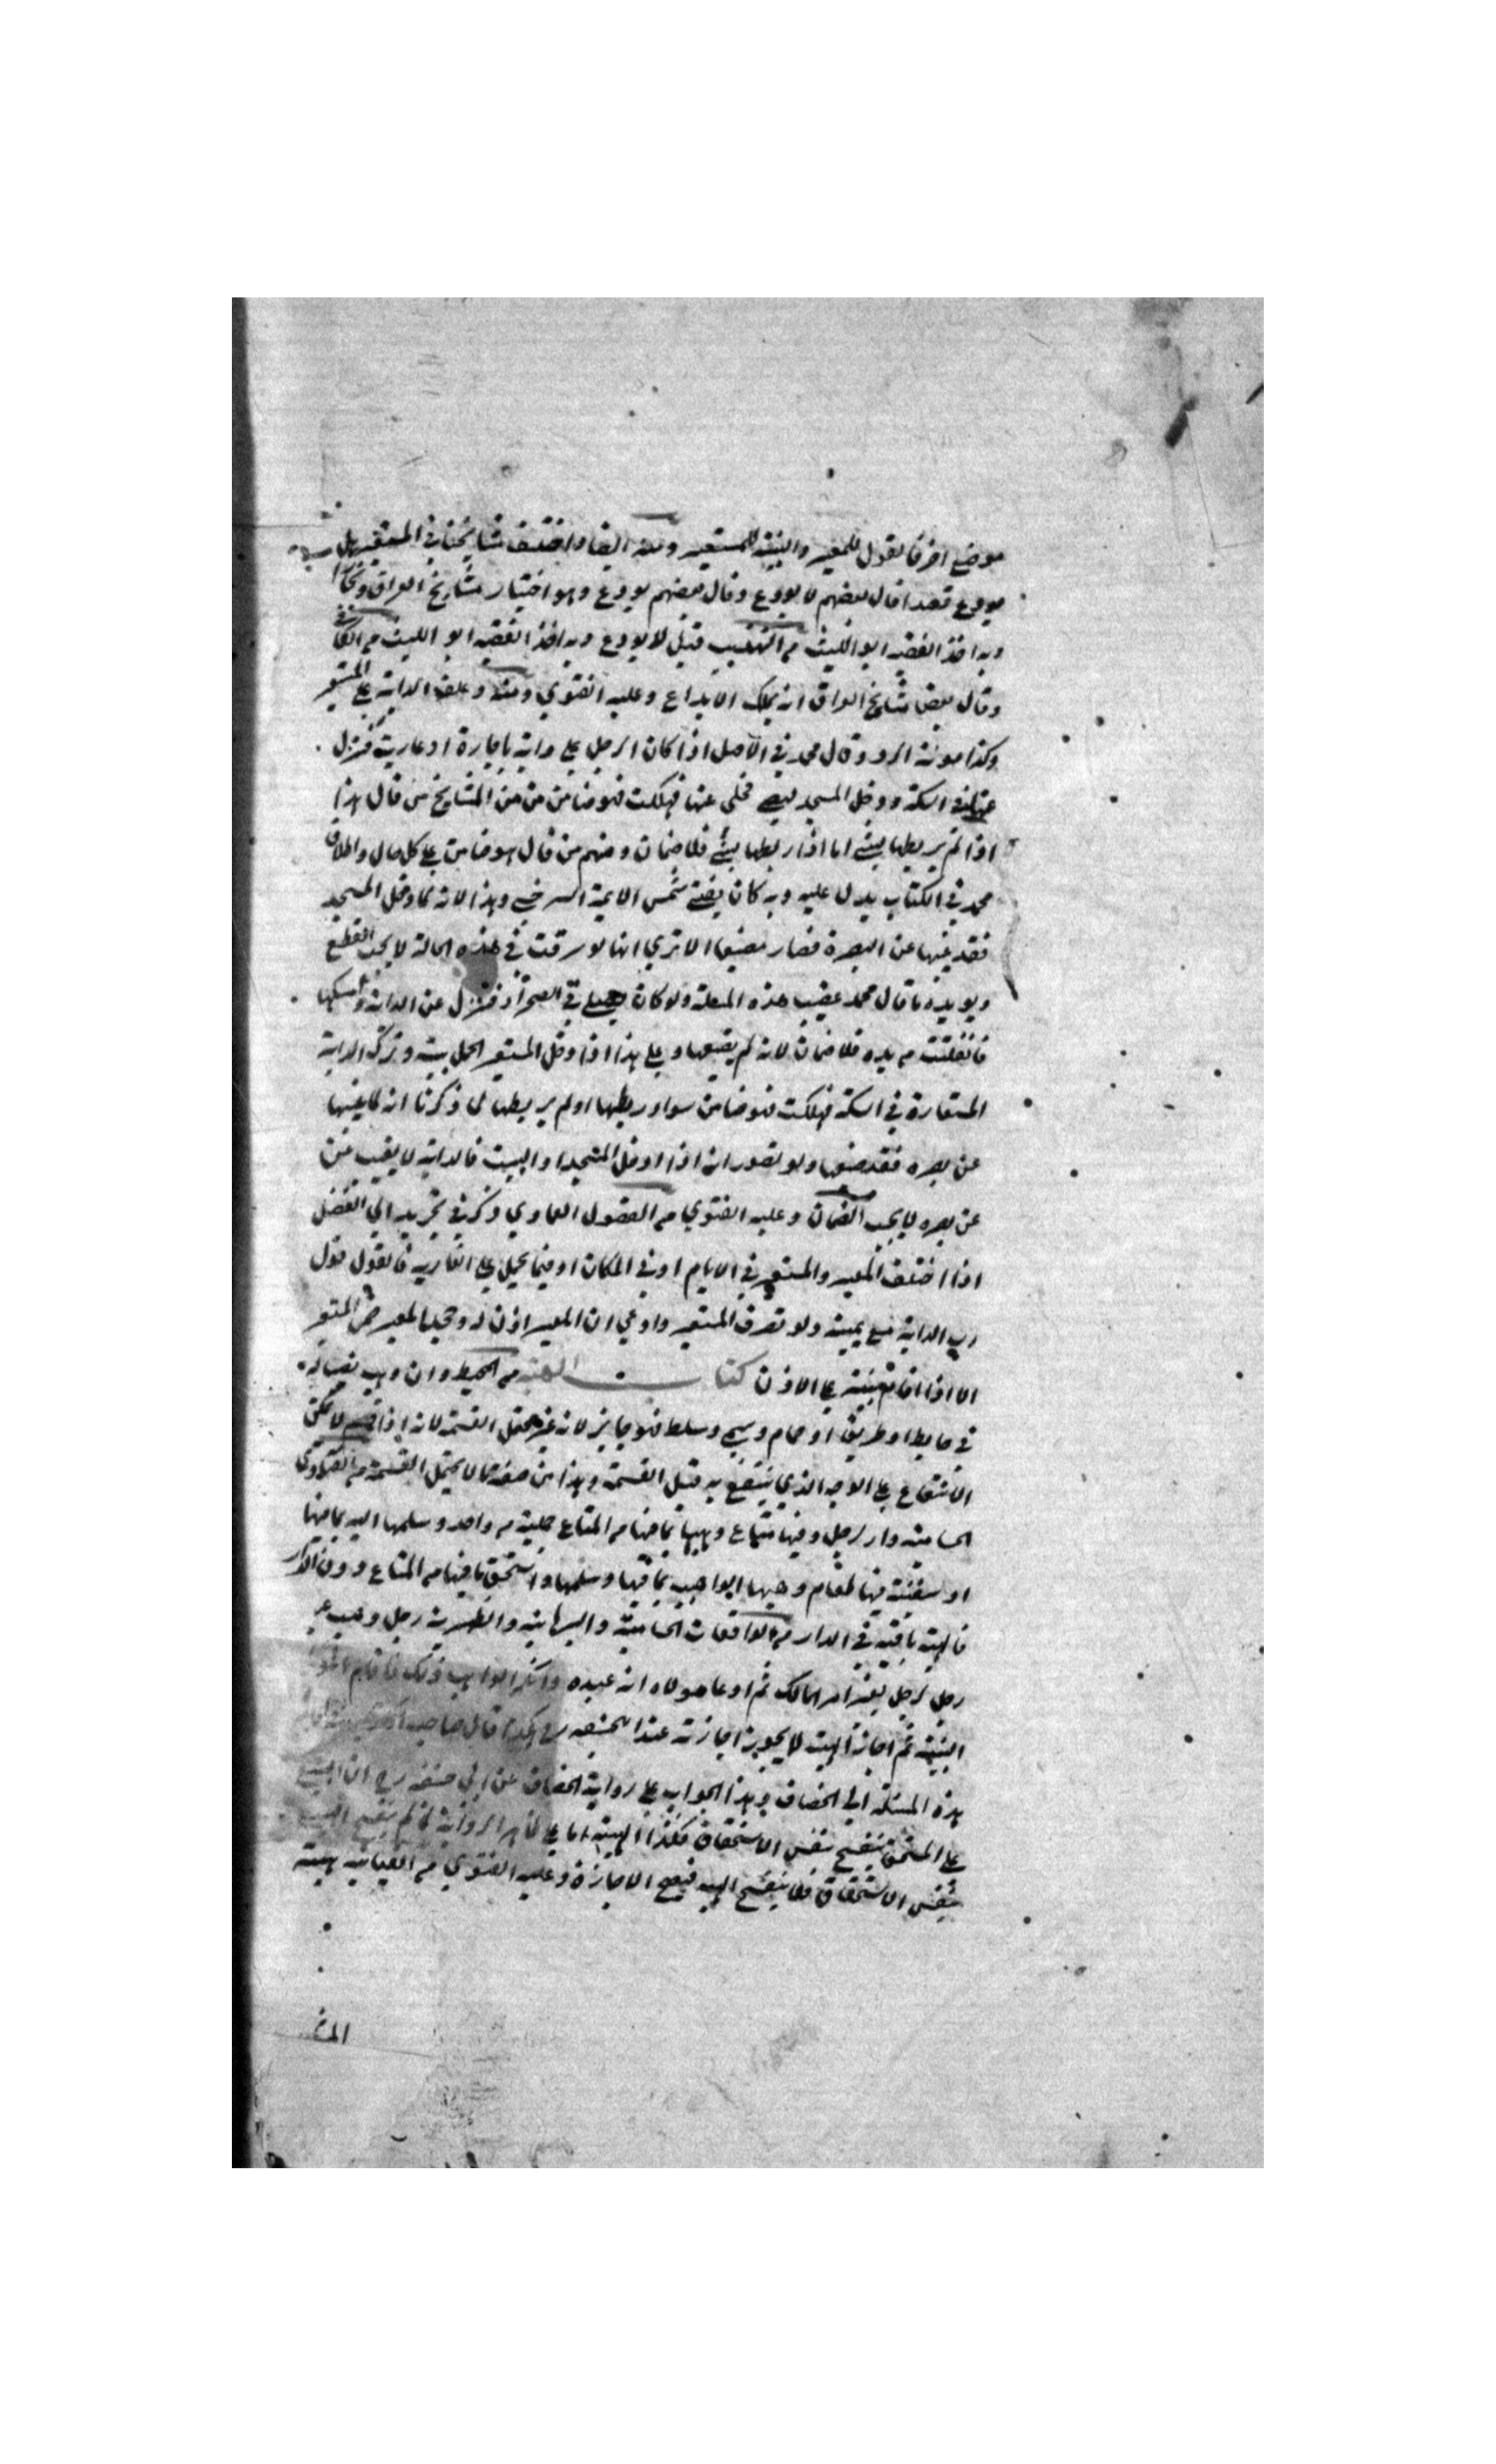 موضع اخر فالقول للمعير والبينة للمستعير ومنه ايضا واختلف مشايخنا في المستعير هل
يودع قصدا قال بعضهم لا يودع وقال بعضهم يودع وهو اختيار مشايخ العراق
وبه اخذ الفقيه ابو الليث من التهذيب قيل لا يودع وبه اخذ الفقيه ابو الليث من الكافي
وقال بعض مشايخ العراق انه يملك الايداع وعليه الفتوي ومنه وعلف الدابة علي المستعير
وكذا مونة الرد وقال محمد في الاصل اذا كان الرجل علي دابة باجارة او عارية فنزل
عنها في السكة ودخل المسجد ليصلي فخلي عنها فهلكت فهو ضامن من المشايخ من قال هذا
اذا لم يربطها بشئ اما اذا ربطها بشئ فلا ضمان ومنهم من قال هو ضامن علي كل حال واطلاق
محمد في الكتاب يدل عليه وبه كان يفتي شمس الايمة السرخسي وهذا لانه لما دخل المسجد
فقد غيبها عن البصرة فصار مضيعا الا تري انها لو سرقت في هذه الحالة لا يجب القطع
ويويده ما قال محمد عقيب هذه المسلة ولو كان يصلي في الصحراء فنزل عن الدابة وامسكها
فانفلتت من يده فلا ضمان لانه لم يضيعها وعلي هذا اذا دخل المستعير الحمل بيته وترك الدابة
المستعارة في السكة فهلكت فهو ضامن سوا ربطها او لم يربطها لما ذكرنا انه لما غيبها
عن بصره فقد ضيعها ولو تصور انه اذا دخل المسجد او البيت فالدابة لا يغيب
عن بصره لا يجب الضمان وعليه الفتوي من الفصول العمادي ذكر في تجريد ابي الفضل
اذا اختلف المعير والمستعير في الايام او في المكان او فيما يحمل علي العارية فالقول قول
رب الدابة مع يمينه ولو تصرف المستعير وادعي ان المعير اذن له وجحد المعير ضمن المستعير
الا اذا اقام بينة علي الاذن كتاب الهبة من المحيط وان وهب نصيبا له
في حايط او طريق او حمام وسمي وسلط فهو جايز لانه غير محتمل القسمة لانه اذا قسم لا يمكن
الانتفاع علي الوجه الذي ينتفع به قبل القسمة وهذا من صفة ما لا يحتمل القسمة من الفتاوي
الحسامية دار لرجل وفيها متاع وهبها بما فيها من المتاع من واحد وسلمها اليه بما فيها
او سفينة فيها طعام وهبها الواهب بما فيها وسلمها واستحق ما فيها من المتاع دون الدار
فالهبة باقية في الدار من الواقعات الحسامية والبرهانية رجل وهب عبد
رجل لرجل بغير امر المالك ثم ادعا مولاه انه عبده وانكر الواهب ذلك فاقام المولي
البينة ثم اجاز الهبة لا يجوز اجازته عند ابي حنيفه رح هكذا قال صاحب
هذه المسئلة الي الخصاف وهذا الجواب علي رواية الخصاف عن ابي حنيفه رح ان البيع
علي المستحق ينفسخ بنفس الاستحقاق فكذا الهبة اما علي ظاهر الرواية لما لم ينفسخ البيع
بنفس الاستحقاق فلا ينفسخ الهبه فيصح الاجازة وعليه الفتوي من العيانيه هبة